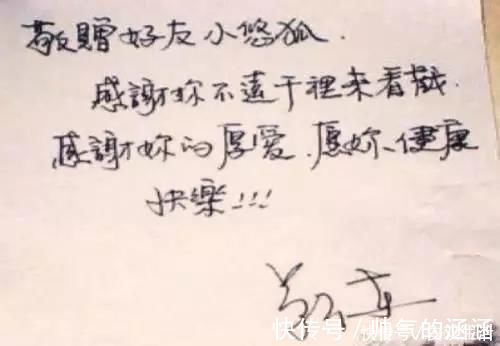 敬贈好友小悠狐.
感謝妳不遠千裡来看戲.
感謝妳的厚爱.愿妳健康
快樂!!!
快传号/帅气的涵涵